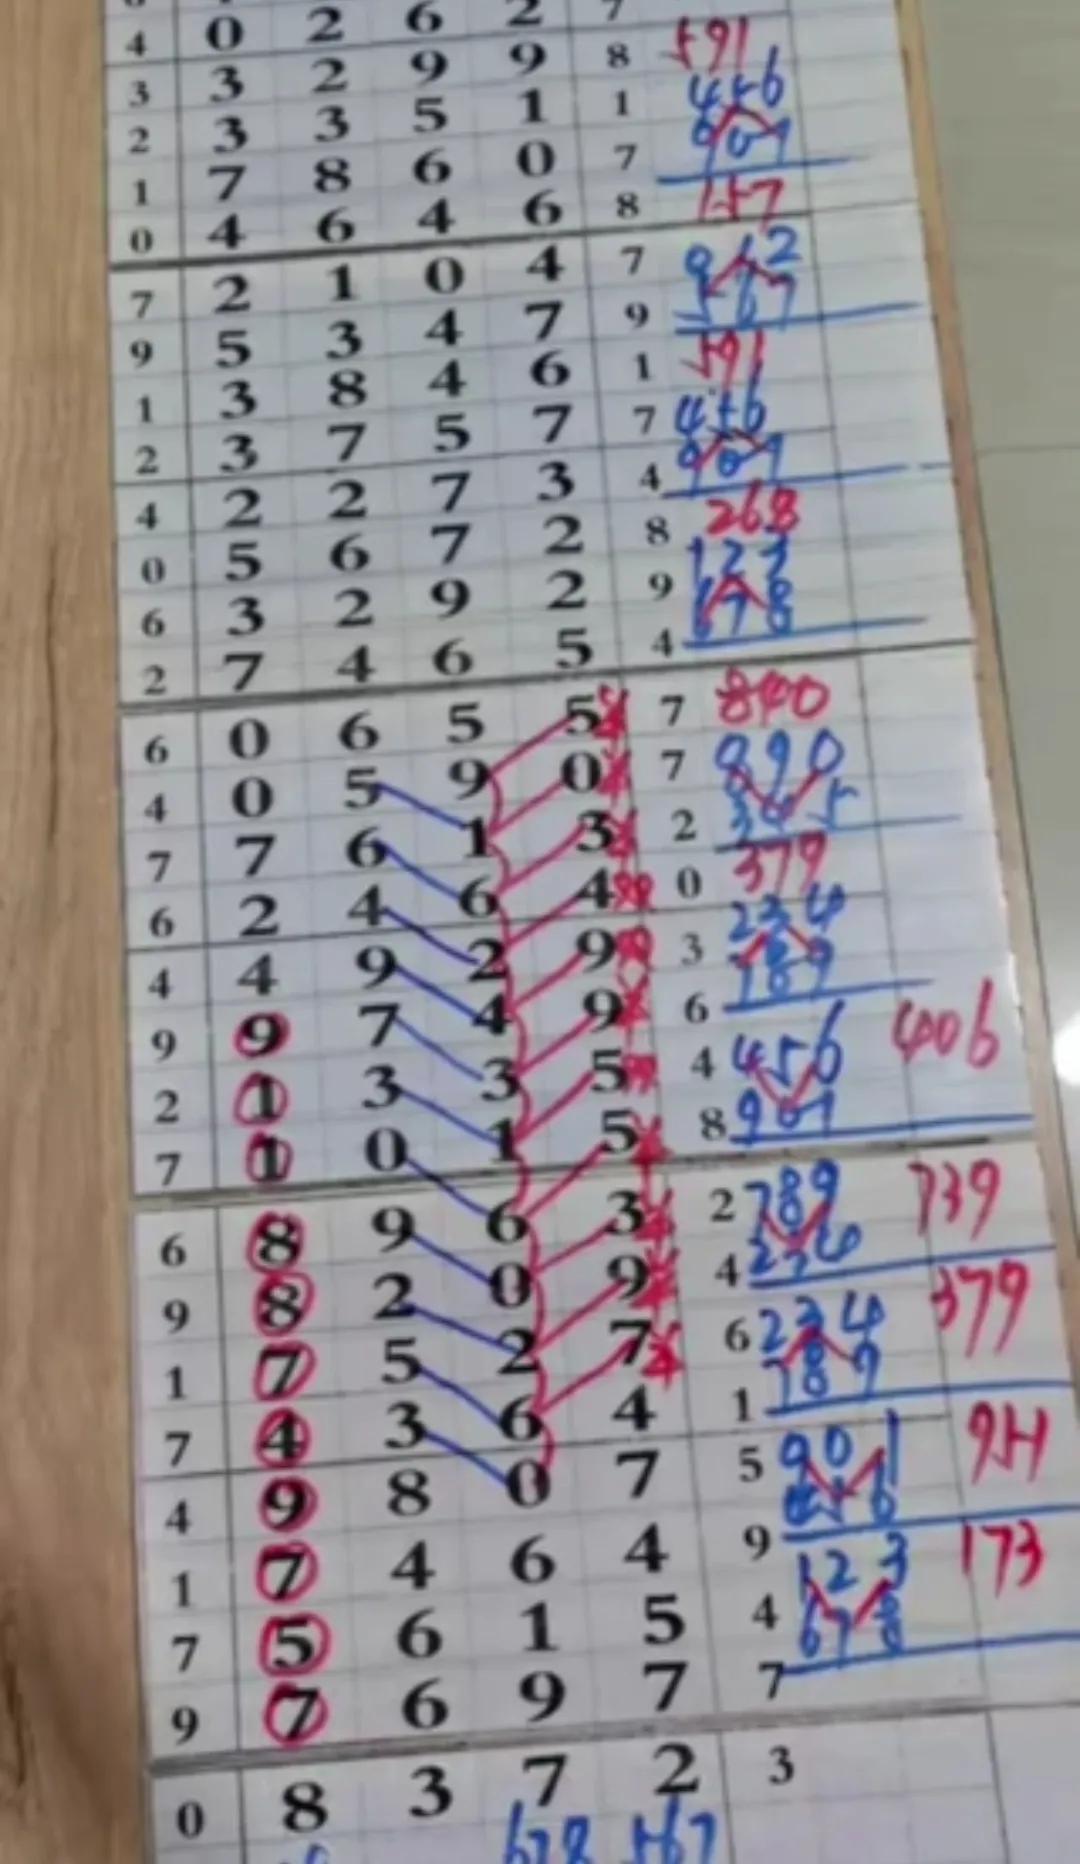 4 0 2 6 2 7
3 3 2 9 9 8 591
2 3 3 5 1 1 456
1 7 8 6 0 7 901
0 4 6 4 6 8 157
7 2 1 0 4 7 912
9 5 3 4 7 9 567
1 3 8 4 6 1 591
2 3 7 5 7 7 456
4 2 2 7 3 4 901
0 5 6 7 2 8 268
6 3 2 9 2 9 123
2 7 4 6 5 4 678
6 0 6 5 5 7 840
4 0 5 9 0 7 890
7 7 6 1 3 2 345
6 2 4 6 4 0 379
4 4 9 2 9 3 234
9 9 7 4 9 6 789
2 1 3 3 5 4 456 406
7 1 0 1 5 8 901
6 8 9 6 3 2 789 739
9 8 2 0 9 4 234
1 7 5 2 7 6 234 379
7 4 3 6 4 1 789
4 9 8 0 7 5 901
1 7 4 6 4 9 456
7 5 6 1 5 4 123 173
9 7 6 9 7 7 678
0 8 3 7 2 3
678 567